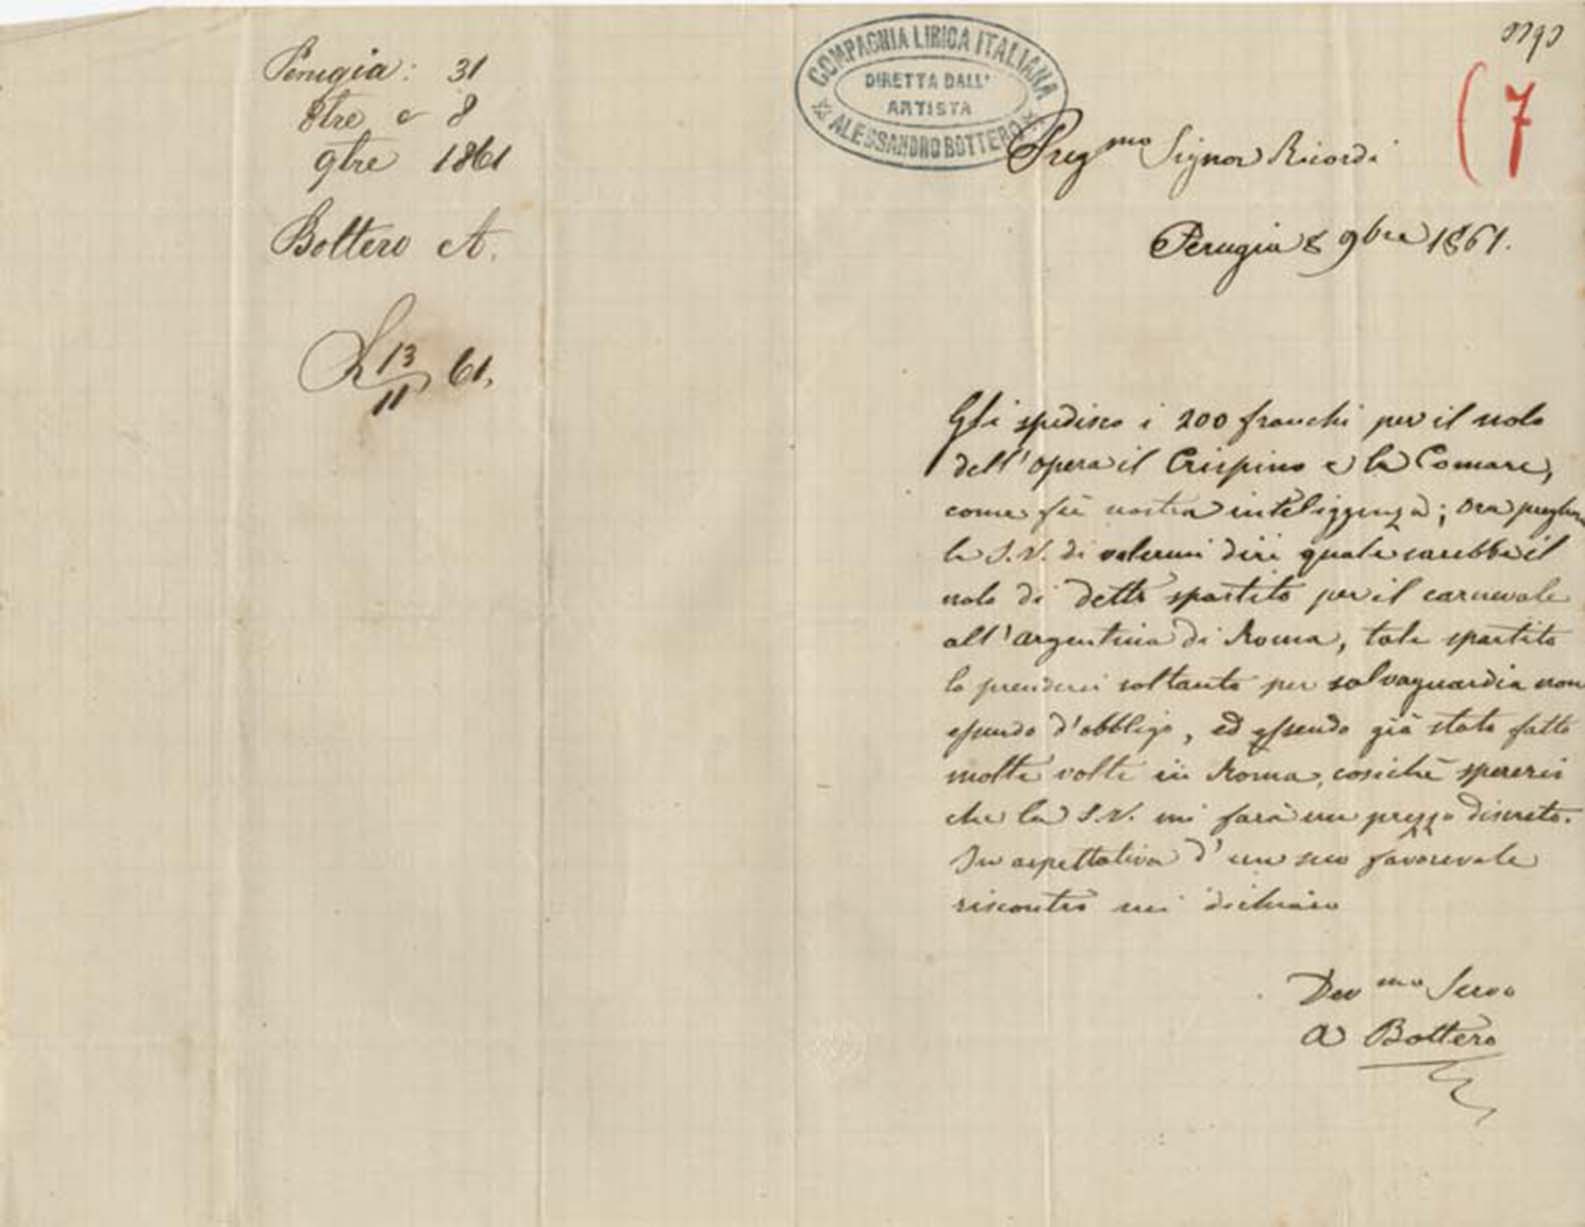 Perugia: 31
8bre e 8
9bre 1861
Bottero A.
R 13/11 61.
COMPAGNIA LIRICA ITALIANA
DIRETTA DALL'
ARTISTA
ALESSANDRO BOTTERO
(7
Preg^mo Signor Ricordi
Perugia 8 9bre 1861.
Gli spedisco i 200 franchi per il nolo
dell'opera il Crispino e la Comare,
come fù nostra inteliggenza; ora
la S.V. di volermi dire quale sarebbe il
nolo di detto spartito per il carnevale
all'argentina di Roma, tale spartito
lo prenderei soltanto per salvaguardia non
essendo d'obbligo, ed essendo già stato fatto
molte volte in Roma, cosichè spererei
che la S.V. mi farà un prezzo discreto.
In aspettativa d'un suo favorevole
riscontro mi dichiaro
Dev^mo Servo
A Bottero